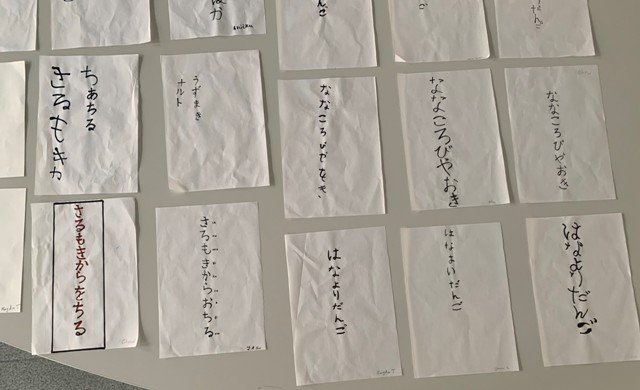 んご
ご
だんご
さるもきか
うずまき
ナルト
ななころびやおき
ななころびやおき
ななころびやおき
さるもきからをちる
さるもきからおちる
はなよりだんご
はなよいだんご
はなよりだんご